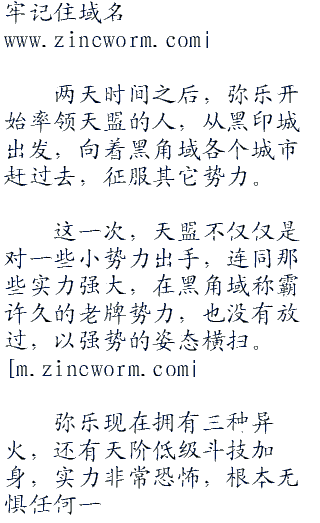 牢记住域名
www.zincworm.com|
两天时间之后，弥乐开
始率领天盟的人，从黑印城
出发，向着黑角域各个城市
赶过去，征服其它势力。
这一次，天盟不仅仅是
对一些小势力出手，连同那
些实力强大，在黑角域称霸
许久的老牌势力，也没有放
过，以强势的姿态横扫。
[m.zincworm.com|
弥乐现在拥有三种异
火，还有天阶低级斗技加
身，实力非常恐怖，根本无
惧任何一